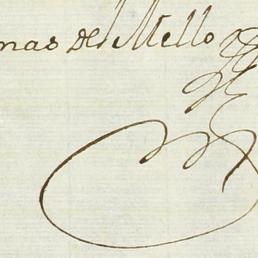 nas de Mello